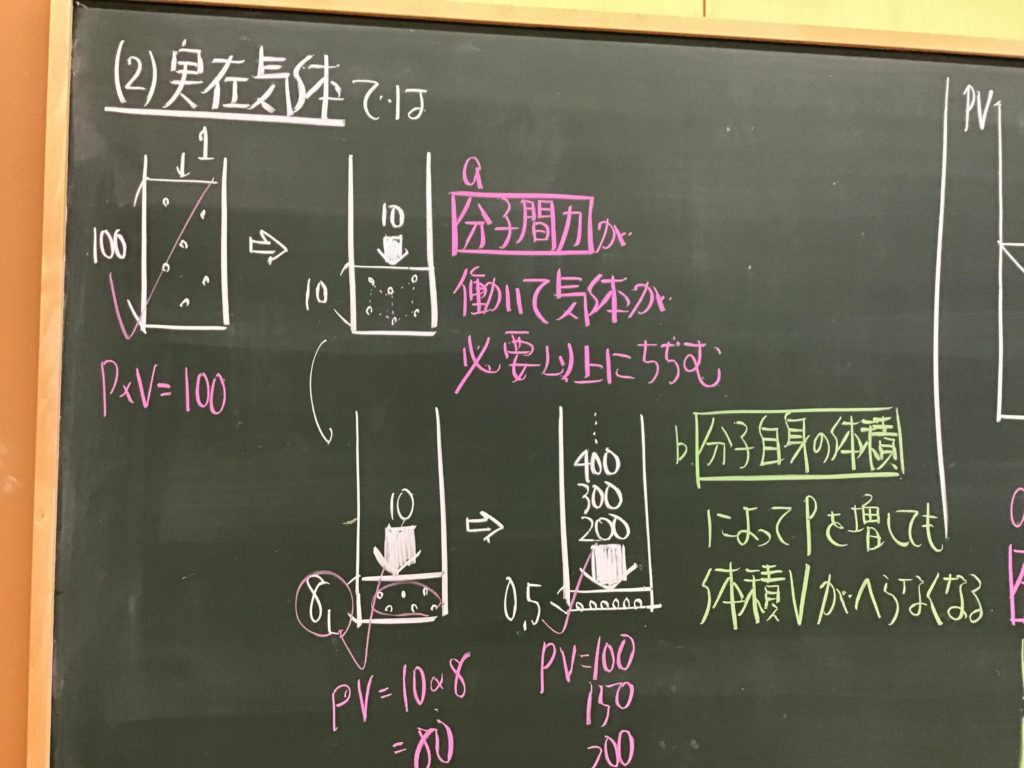 (2)実在気体では
1
100
P×V=100
10
10
a
分子間力が
働いて気体が
必要以上にちぢむ
10
8L
PV=10×8
=80
400
300
200
0.5
PV=100
150
200
b 分子自身の体積
によってPを増しても
体積Vがへらなくなる
PV